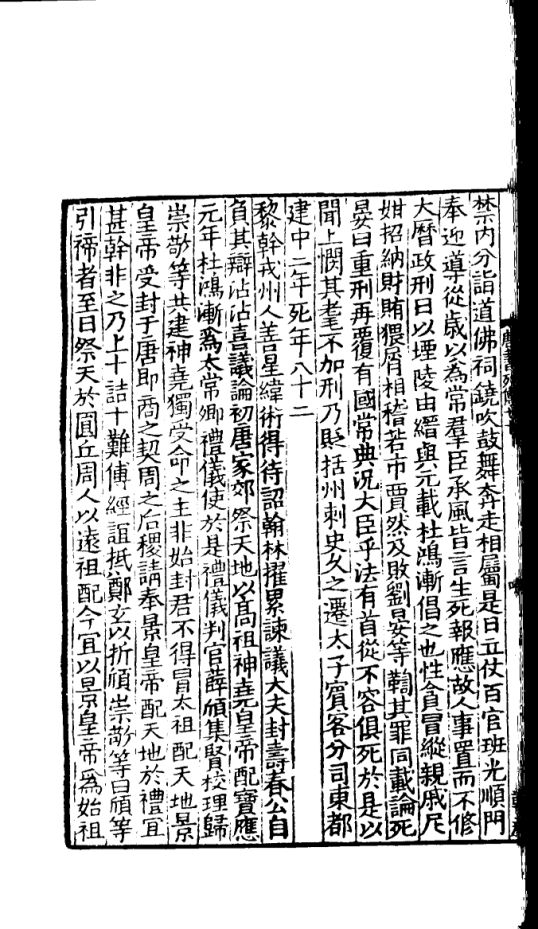 禁內分詣道佛祠鐃吹鼓舞奔走相屬是日立仗百官班光順門
奉迎導從歲以為常羣臣承風皆言生死報應故人事置而不修
大曆政刑日以堙陵由縉與元載杜鴻漸倡之也性貪冒縱親戚尼
姏招納財賄猥屑相稽若市賈然及敗劉晏等鞫其罪同載論死
晏曰重刑再覆有國常典況大臣乎法有首從不容俱死於是以
聞上憫其耄不加刑乃貶括州刺史久之遷太子賓客分司東都
建中二年死年八十二
黎幹戎州人善星緯術得待詔翰林擢累諫議大夫封壽春公自
負其辯沾沾喜議論初唐家郊祭天地以髙祖神堯皇帝配寶應
元年杜鴻漸爲太常卿禮儀使於是禮儀判官薛頎集賢校理歸
崇敬等共建神堯獨受命之主非始封君不得冒太祖配天地景
皇帝受封于唐即商之契周之后稷請奉景皇帝配天地於禮宜
甚幹非之乃上十詰十難傅經誼抵鄭玄以折頎崇敬等曰頎等
引禘者至日祭天於圓丘周人以遠祖配今宜以景皇帝爲始祖